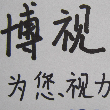 博视
为您视力